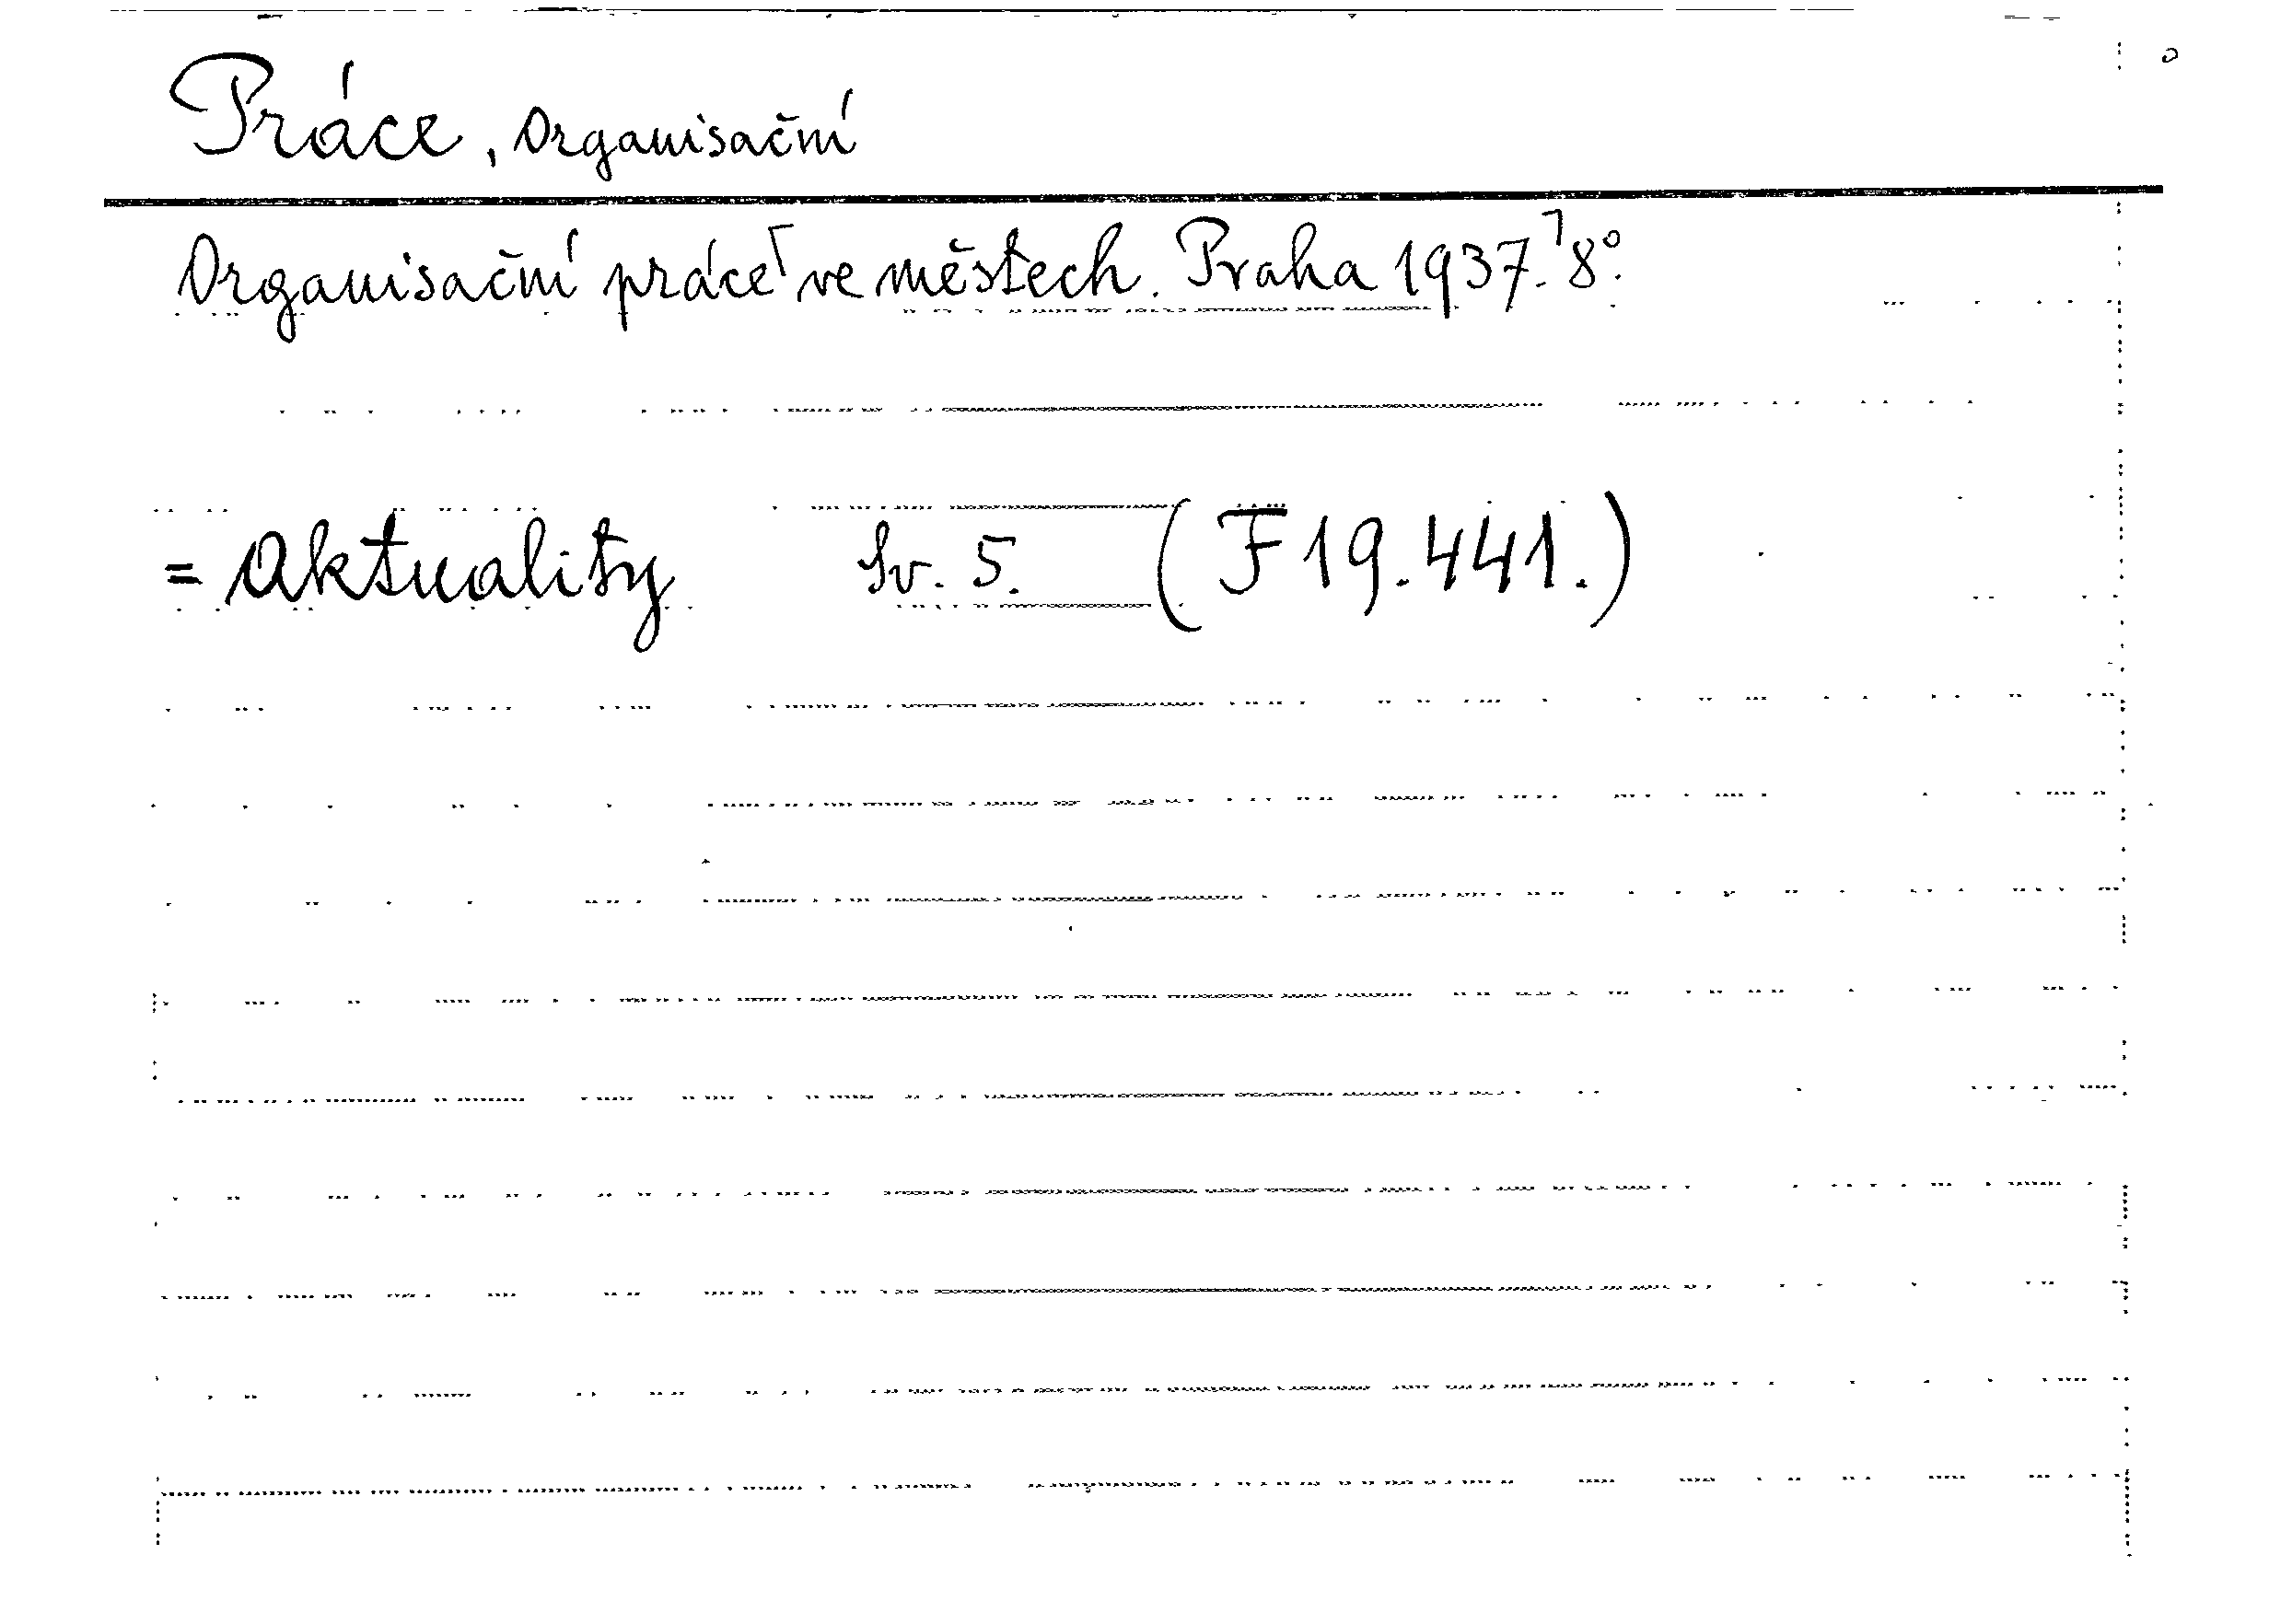 Práce, Organisační
Organisační práce ve městech. Praha 1937. 8°.
= Aktuality Sv. 5. (F 19.441.)